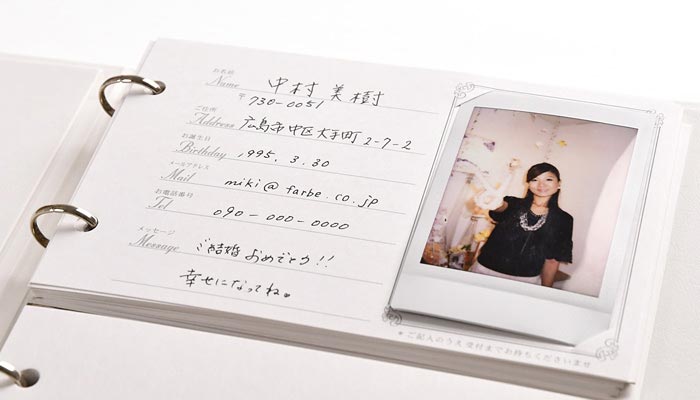 お名前
Name 中村 美樹
〒730-0051
ご住所
Address 広島市中区大手町2-7-2
お誕生日
Birthday 1995.3.30
メールアドレス
Mail miki@farbe.co.jp
お電話番号
Tel 090-000-0000
メッセージ
Message ご結婚おめでとう!!
幸せになってね。
*ご記入のうえ受付までお持ちくださいませ